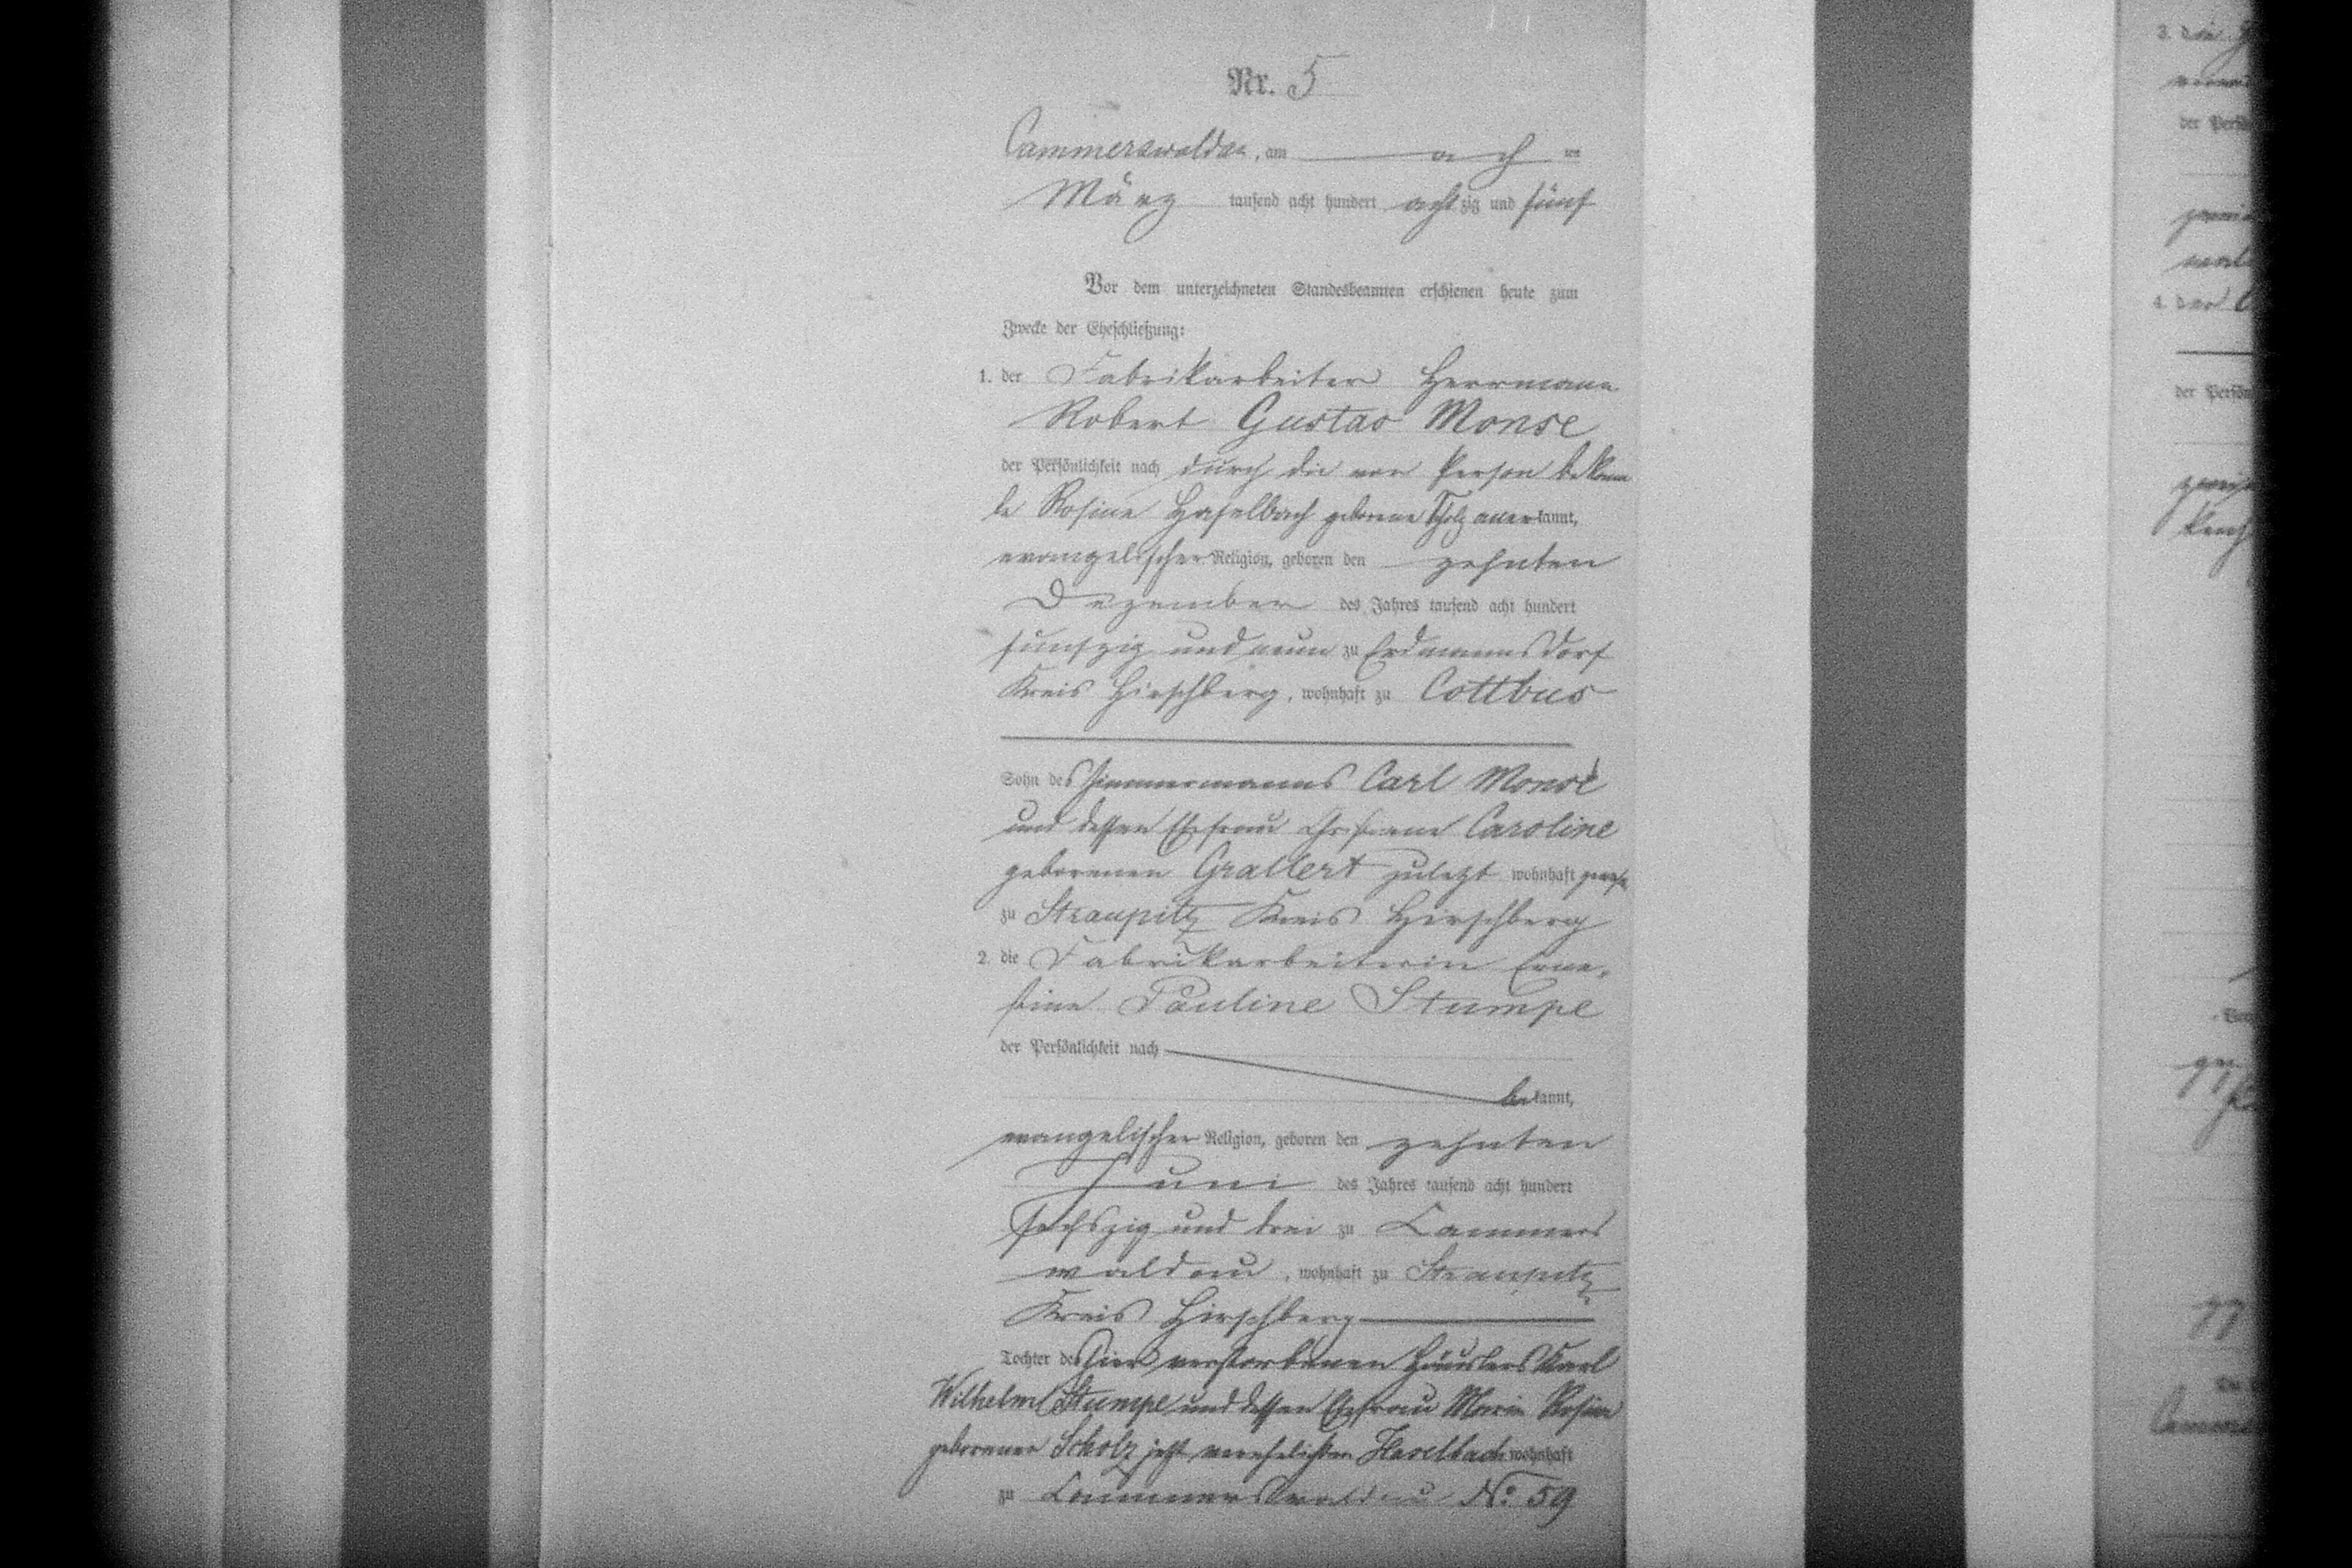 Nr. 5
Cammerswaldau, am ach ten
März tausend acht hundert achtzig und fünf
Vor dem unterzeichneten Standesbeamten erschienen heute zum
Zwecke der Eheschließung:
1. der Fabrikarbeiter Herrmann
Robert Gustav Monse
der Persönlichkeit nach durch die von Person bekann
te Rosine Haselbach geborene Scholz anerkannt,
evangelischer Religion, geboren den zehnten
Dezember des Jahres tausend acht hundert
fünfzig und neun zu Erdmannsdorf
Kreis Hirschberg, wohnhaft zu Cottbus
Sohn des Zimmermanns Carl Monse
und dessen Ehefrau Christiane Caroline
geborenen Grallert zuletzt wohnhaft
zu Straupitz Kreis Hirschberg
2. die Fabrikarbeiterin Erne-
stine Pauline Stumpe
der Persönlichkeit nach
bekannt,
evangelischer Religion, geboren den zehnten
Juni des Jahres tausend acht hundert
sechszig und drei zu Cammers
waldau, wohnhaft zu Straupitz
Kreis Hirschberg
Tochter des hier verstorbenen Häuslers Karl
Wilhelm Stumpe und dessen Ehefrau Marie Rosine
geborener Scholz jetzt verehelichten Haselbach wohnhaft
zu Cammerswaldau No. 59